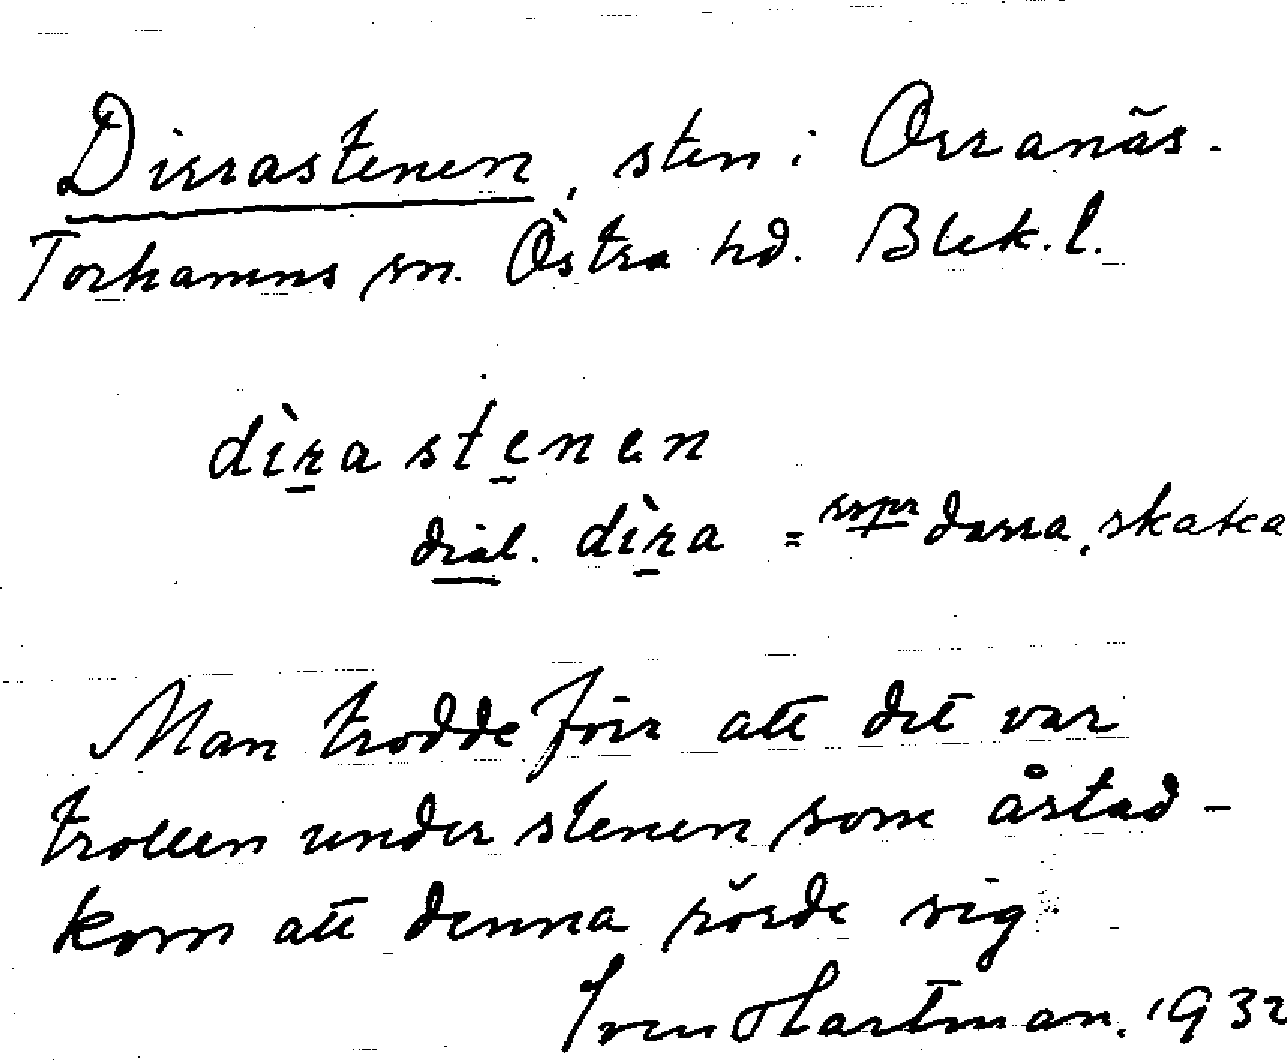 Dirrastenen, sten i Orranäs.
Torhamns sn. Östra hd. Blek. l.
dìra stenen
dial. dìra = darra, skaka
Man trodde förr att det var
trollen under stenen som åstad-
kom att denna rörde sig
Sven Hartman. 1932